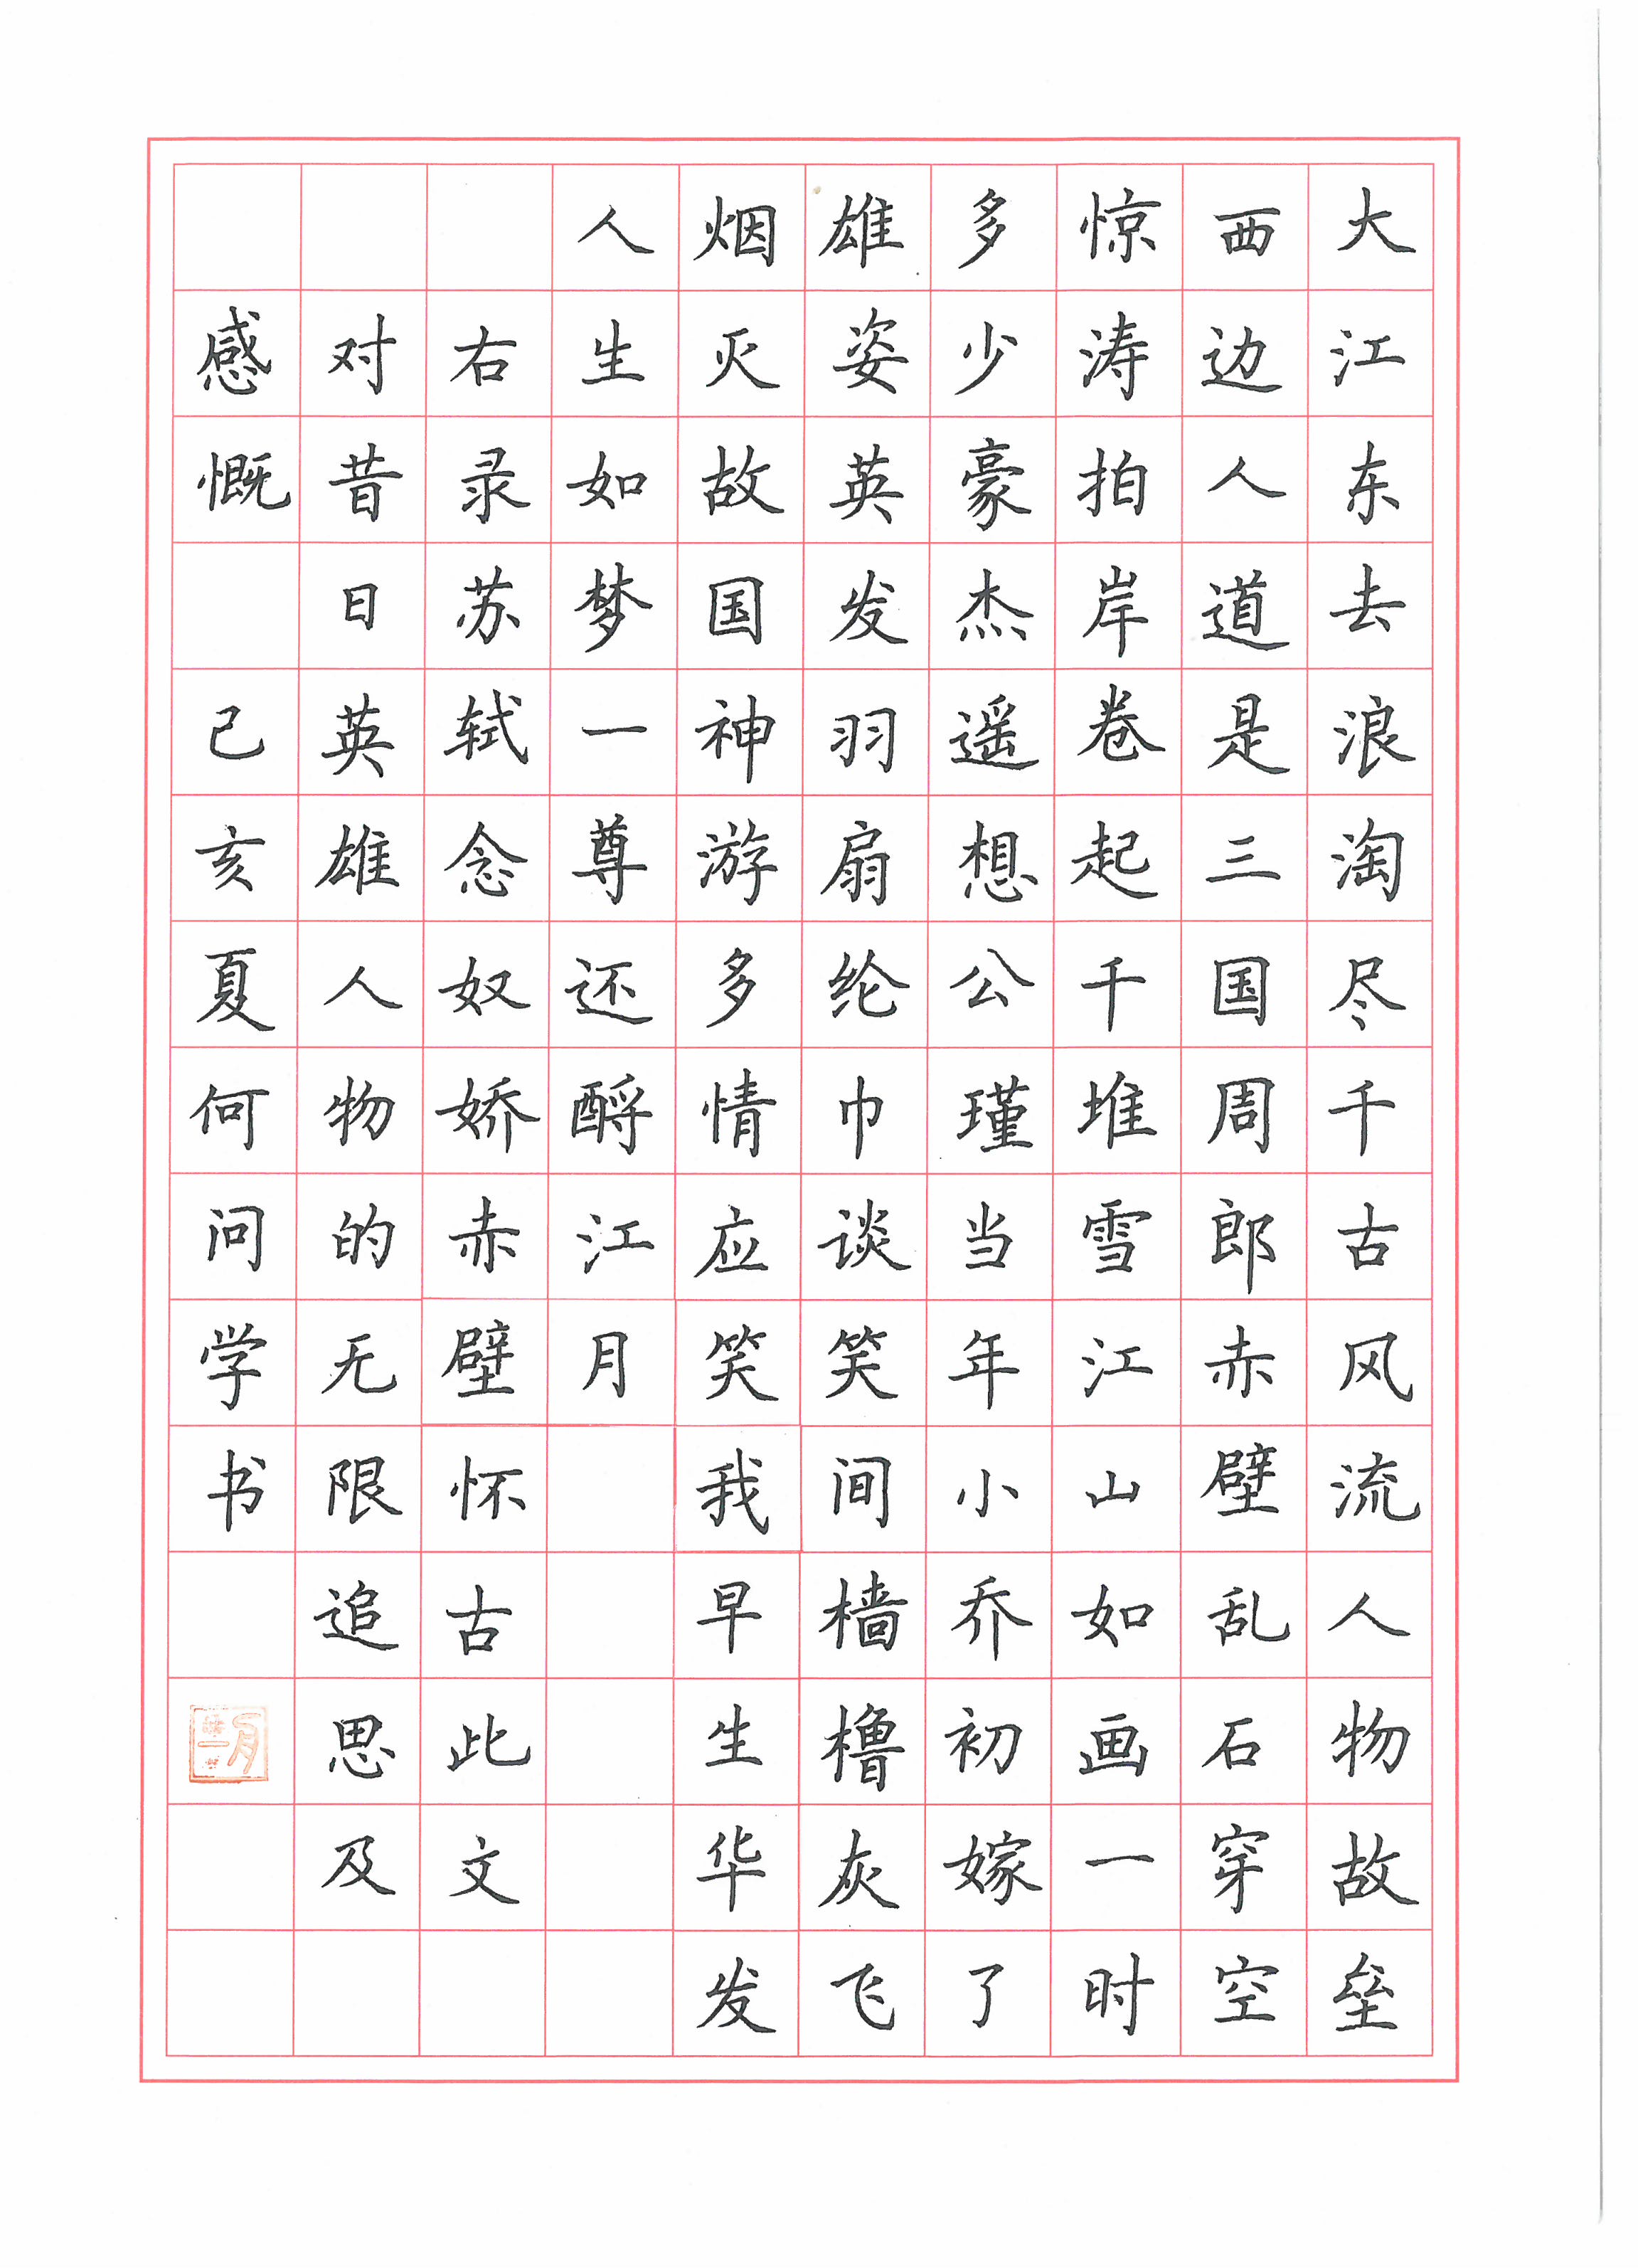 大江东去浪淘尽千古风流人物故垒
西边人道是三国周郎赤壁乱石穿空
惊涛拍岸卷起千堆雪江山如画一时
多少豪杰遥想公瑾当年小乔初嫁了
雄姿英发羽扇纶巾谈笑间樯橹灰飞
烟灭故国神游多情应笑我早生华发
人生如梦一尊还酹江月
右录苏轼念奴娇赤壁怀古此文
对昔日英雄人物的无限追思及
感慨 己亥夏何问学书